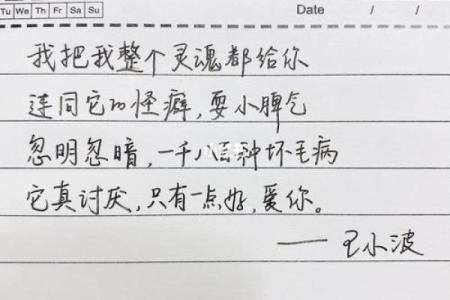 Tu We Th Fr Sa Su
Date / /
我把我整个灵魂都给你
连同它的怪癖，耍小脾气
忽明忽暗，一千八百种坏毛病
它真讨厌，只有一点好，爱你。
—— 王小波